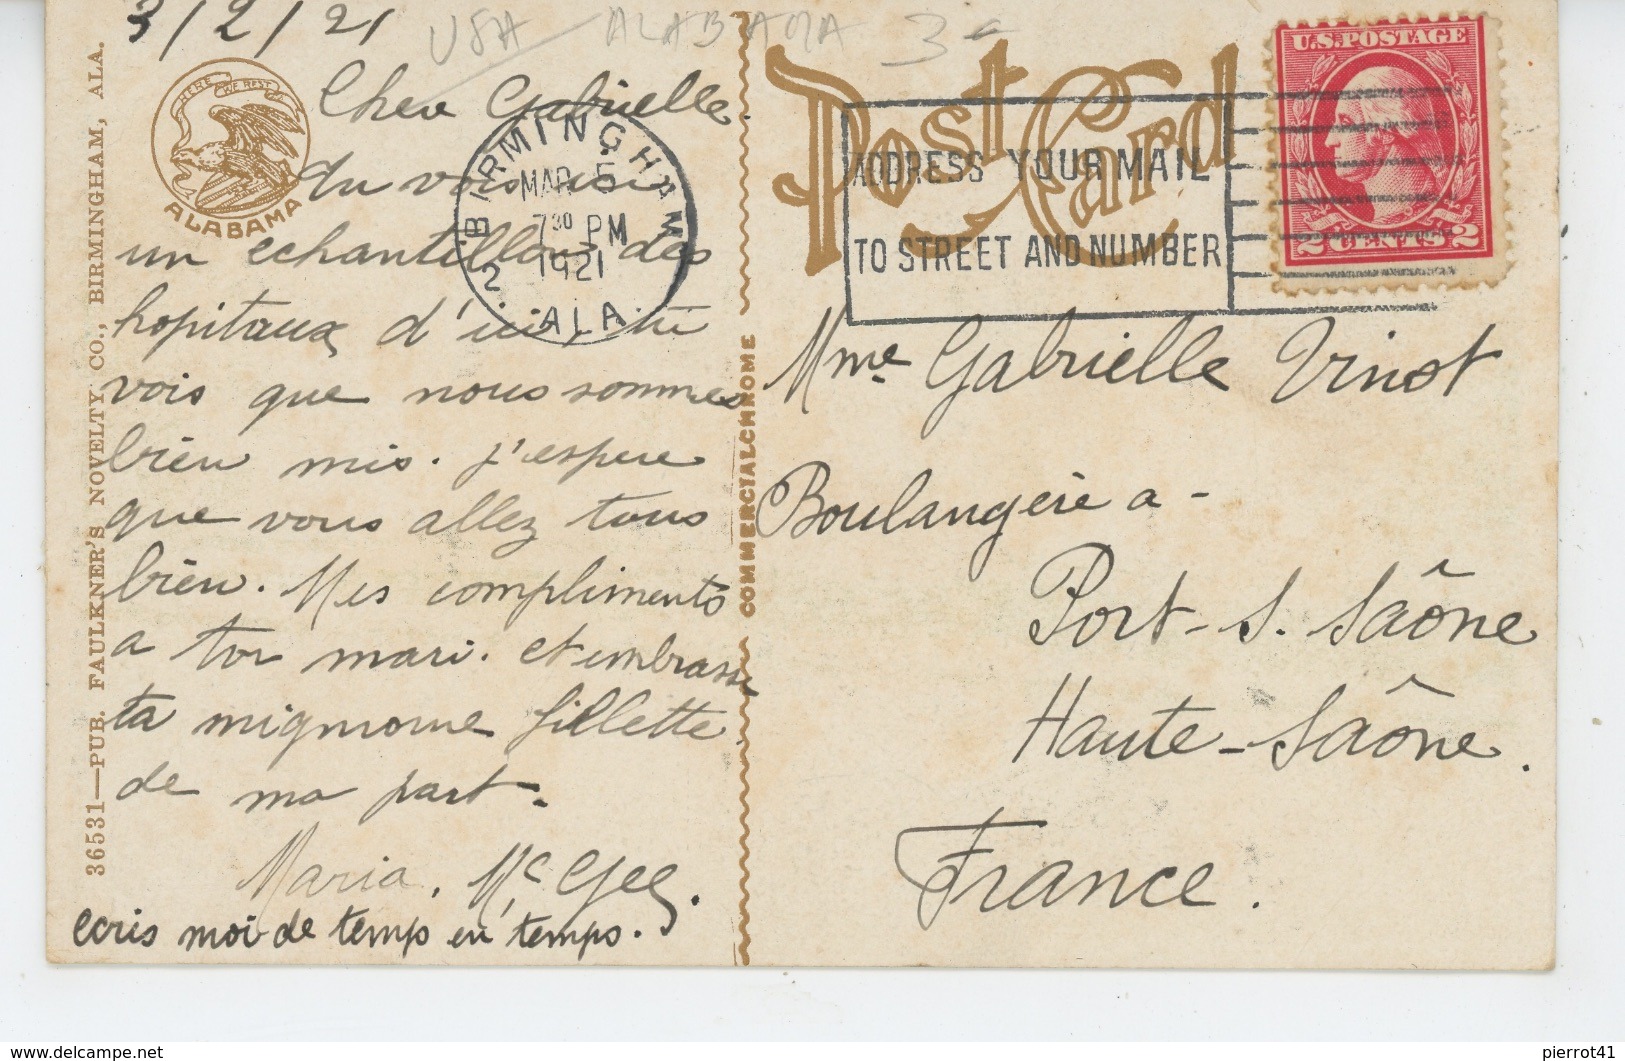 3/2/21
USA ALABAMA 3-
Chere Gabrielle.
tu vois ici
un echantillon des
hopitaux d'ici, tu
vois que nous sommes
bien mis. j'espere
que vous allez tous
bien. Mes compliments
a ton mari. et embrasse
ta mignonne fillette
de ma part.
Maria. Mc Gee.
ecris moi de temp en temps.
HERE WE REST
ALABAMA
36531—PUB. FAULKNER'S NOVELTY CO., BIRMINGHAM, ALA.
COMMERCIALCHROME
BIRMINGHAM
MAR 5
7 30 PM
1921
2. ALA.
Post Card
ADDRESS YOUR MAIL
TO STREET AND NUMBER
U.S. POSTAGE
2 CENTS 2
Mme Gabrielle Vinot
Boulangère a -
Port-s. Saône
Haute-Saône.
France.
www.delcampe.net
pierrot41